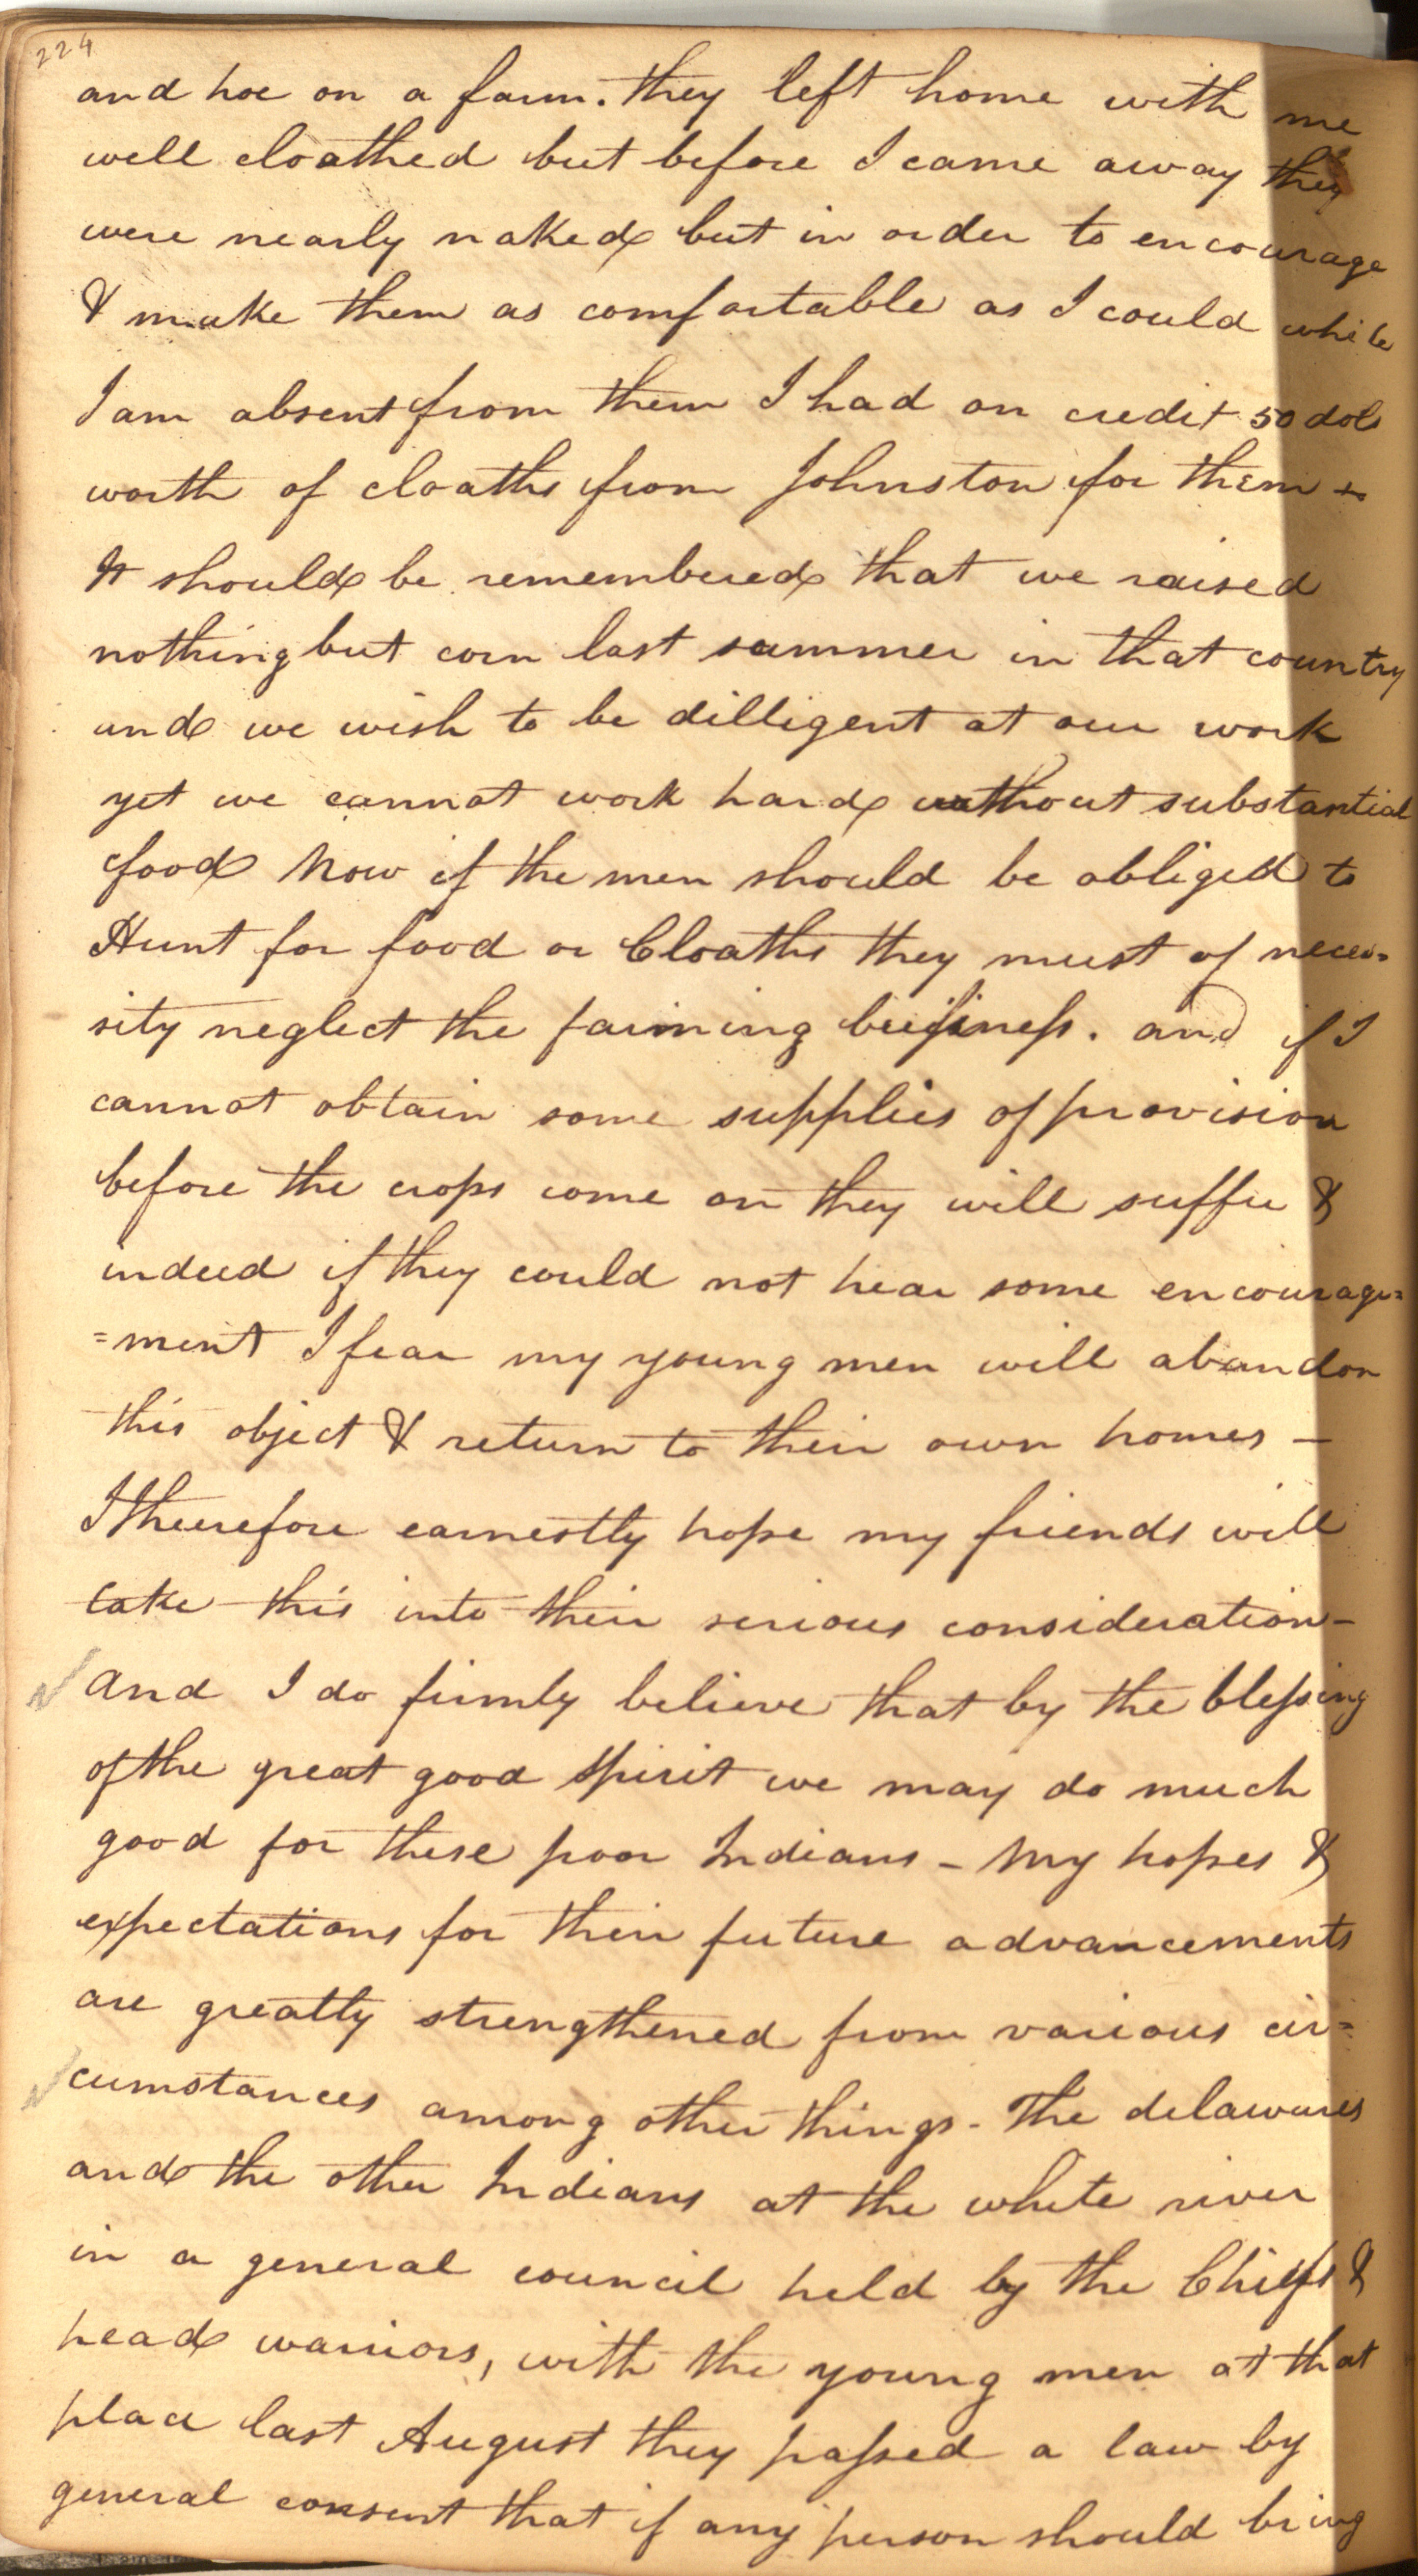 224
and hoe on a farm. they left home with me
well cloathed but before I came away they
were nearly naked but in order to encourage
& make them as comfortable as I could while
I am absent from them I had on credit 50 dols
worth of cloaths from Johnston for them –
It should be remembered that we raised
nothing but corn last summer in that country
and we wish to be dilligent at our work
yet we cannot work hard without substantial
food Now if the men should be obliged to
Hunt for food or Cloaths they must of neces-
sity neglect the farming business. and if I
cannot obtain some supplies of provision
before the crops come on they will suffer &
indeed if they could not hear some encourage=
=ment I fear my young men will abandon
this object & return to their own homes –
I therefore earnestly hope my friends will
take this into their serious consideration –
and I do firmly believe that by the blessing
of the great good Spirit we may do much
good for these poor Indians – My hopes &
expectations for their future advancements
are greatly strengthened from various cir=
cumstances among other things – The delawares
and the other Indians at the white river
in a general council held by the Chiefs &
head warriors, with the young men at that
place last August they passed a law by
general consent that if any person should bring